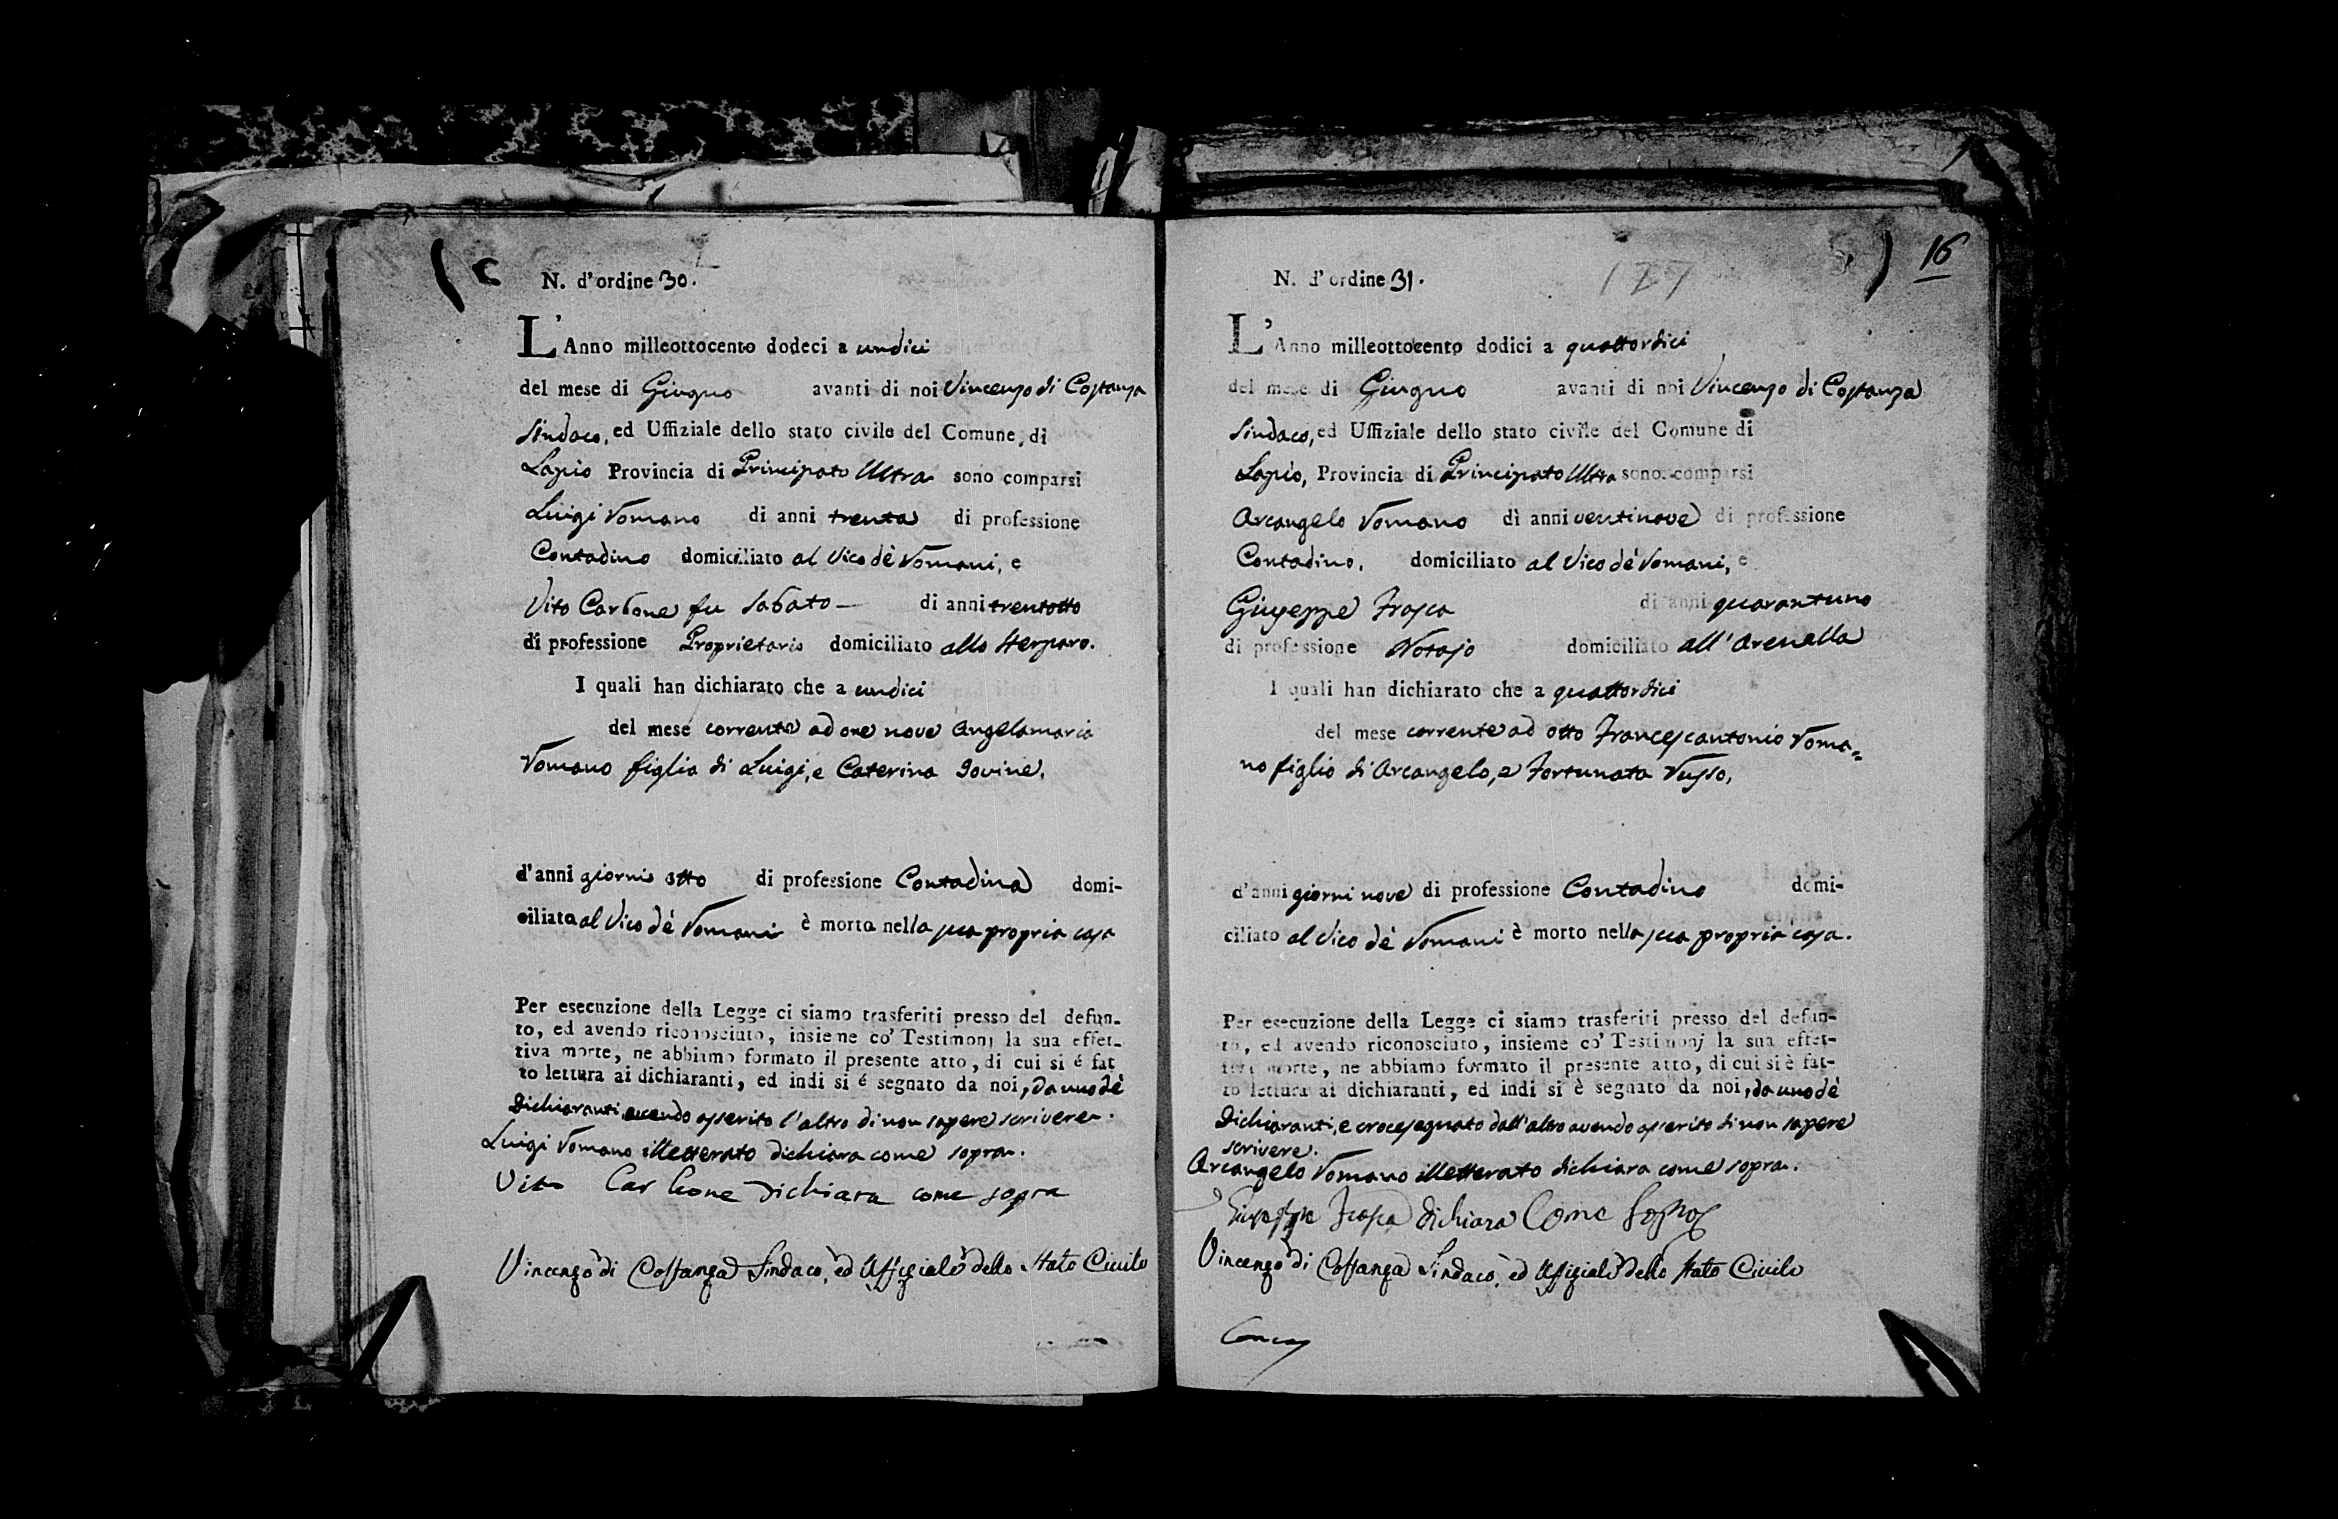 N. d'ordine 30.
L'Anno milleottocento dodeci a undici
del mese di Giugno avanti di noi Vincenzo di Costanza
Sindaco, ed Uffiziale dello stato civile del Comune, di
Lapio Provincia di Principato Ultra sono comparsi
Luigi Romano di anni trenta di professione
Contadino domiciliato al Vico de' Romani, e
Vito Carbone fu Sabato di anni trentotto
di professione Proprietario domiciliato allo Sterparo.
I quali han dichiarato che a undici
del mese corrente ad ore nove Angelamaria
Romano figlia di Luigi, e Caterina Iovine,
d'anni giorni otto di professione Contadina domi-
ciliata al Vico de' Romani è morta nella sua propria casa
Per esecuzione della Legge ci siamo trasferiti presso del defun-
to, ed avendo riconosciuto, insieme co' Testimonj la sua effet-
tiva morte, ne abbiamo formato il presente atto, di cui si é fat
to lettura ai dichiaranti, ed indi si é segnato da noi, da uno de'
Dichiaranti avendo asserito l'altro di non sapere scrivere.
Luigi Romano illetterato dichiara come sopra.
Vito Carbone dichiara come sopra
Vincenzo di Costanza Sindaco, ed Uffiziale dello Stato Civile
16
127
N. d'ordine 31.
L'Anno milleottocento dodici a quattordici
del mese di Giugno avanti di noi Vincenzo di Costanza
Sindaco, ed Uffiziale dello stato civile del Comune di
Lapio, Provincia di Principato Ultra sono comparsi
Arcangelo Romano di anni ventinove di professione
Contadino, domiciliato al Vico de' Romani, e
Giuseppe Frasca di anni quarantuno
di professione Notajo domiciliato all'Arenella
I quali han dichiarato che a quattordici
del mese corrente ad otto Francescantonio Roma-
no figlio di Arcangelo, e Fortunata Russo,
d'anni giorni nove di professione Contadino domi-
ciliato al Vico de' Romani è morto nella sua propria casa.
Per esecuzione della Legge ci siamo trasferiti presso del defun-
to, ed avendo riconosciuto, insieme co' Testimonj la sua effet-
tiva morte, ne abbiamo formato il presente atto, di cui si è fat-
to lettura ai dichiaranti, ed indi si è segnato da noi, da uno de'
Dichiaranti, e crocesegnato dall'altro avendo asserito di non sapere
scrivere.
Arcangelo Romano illetterato dichiara come sopra.
Giuseppe Frasca dichiara Come Sopra
Vincenzo di Costanza Sindaco, ed Uffiziale dello Stato Civile